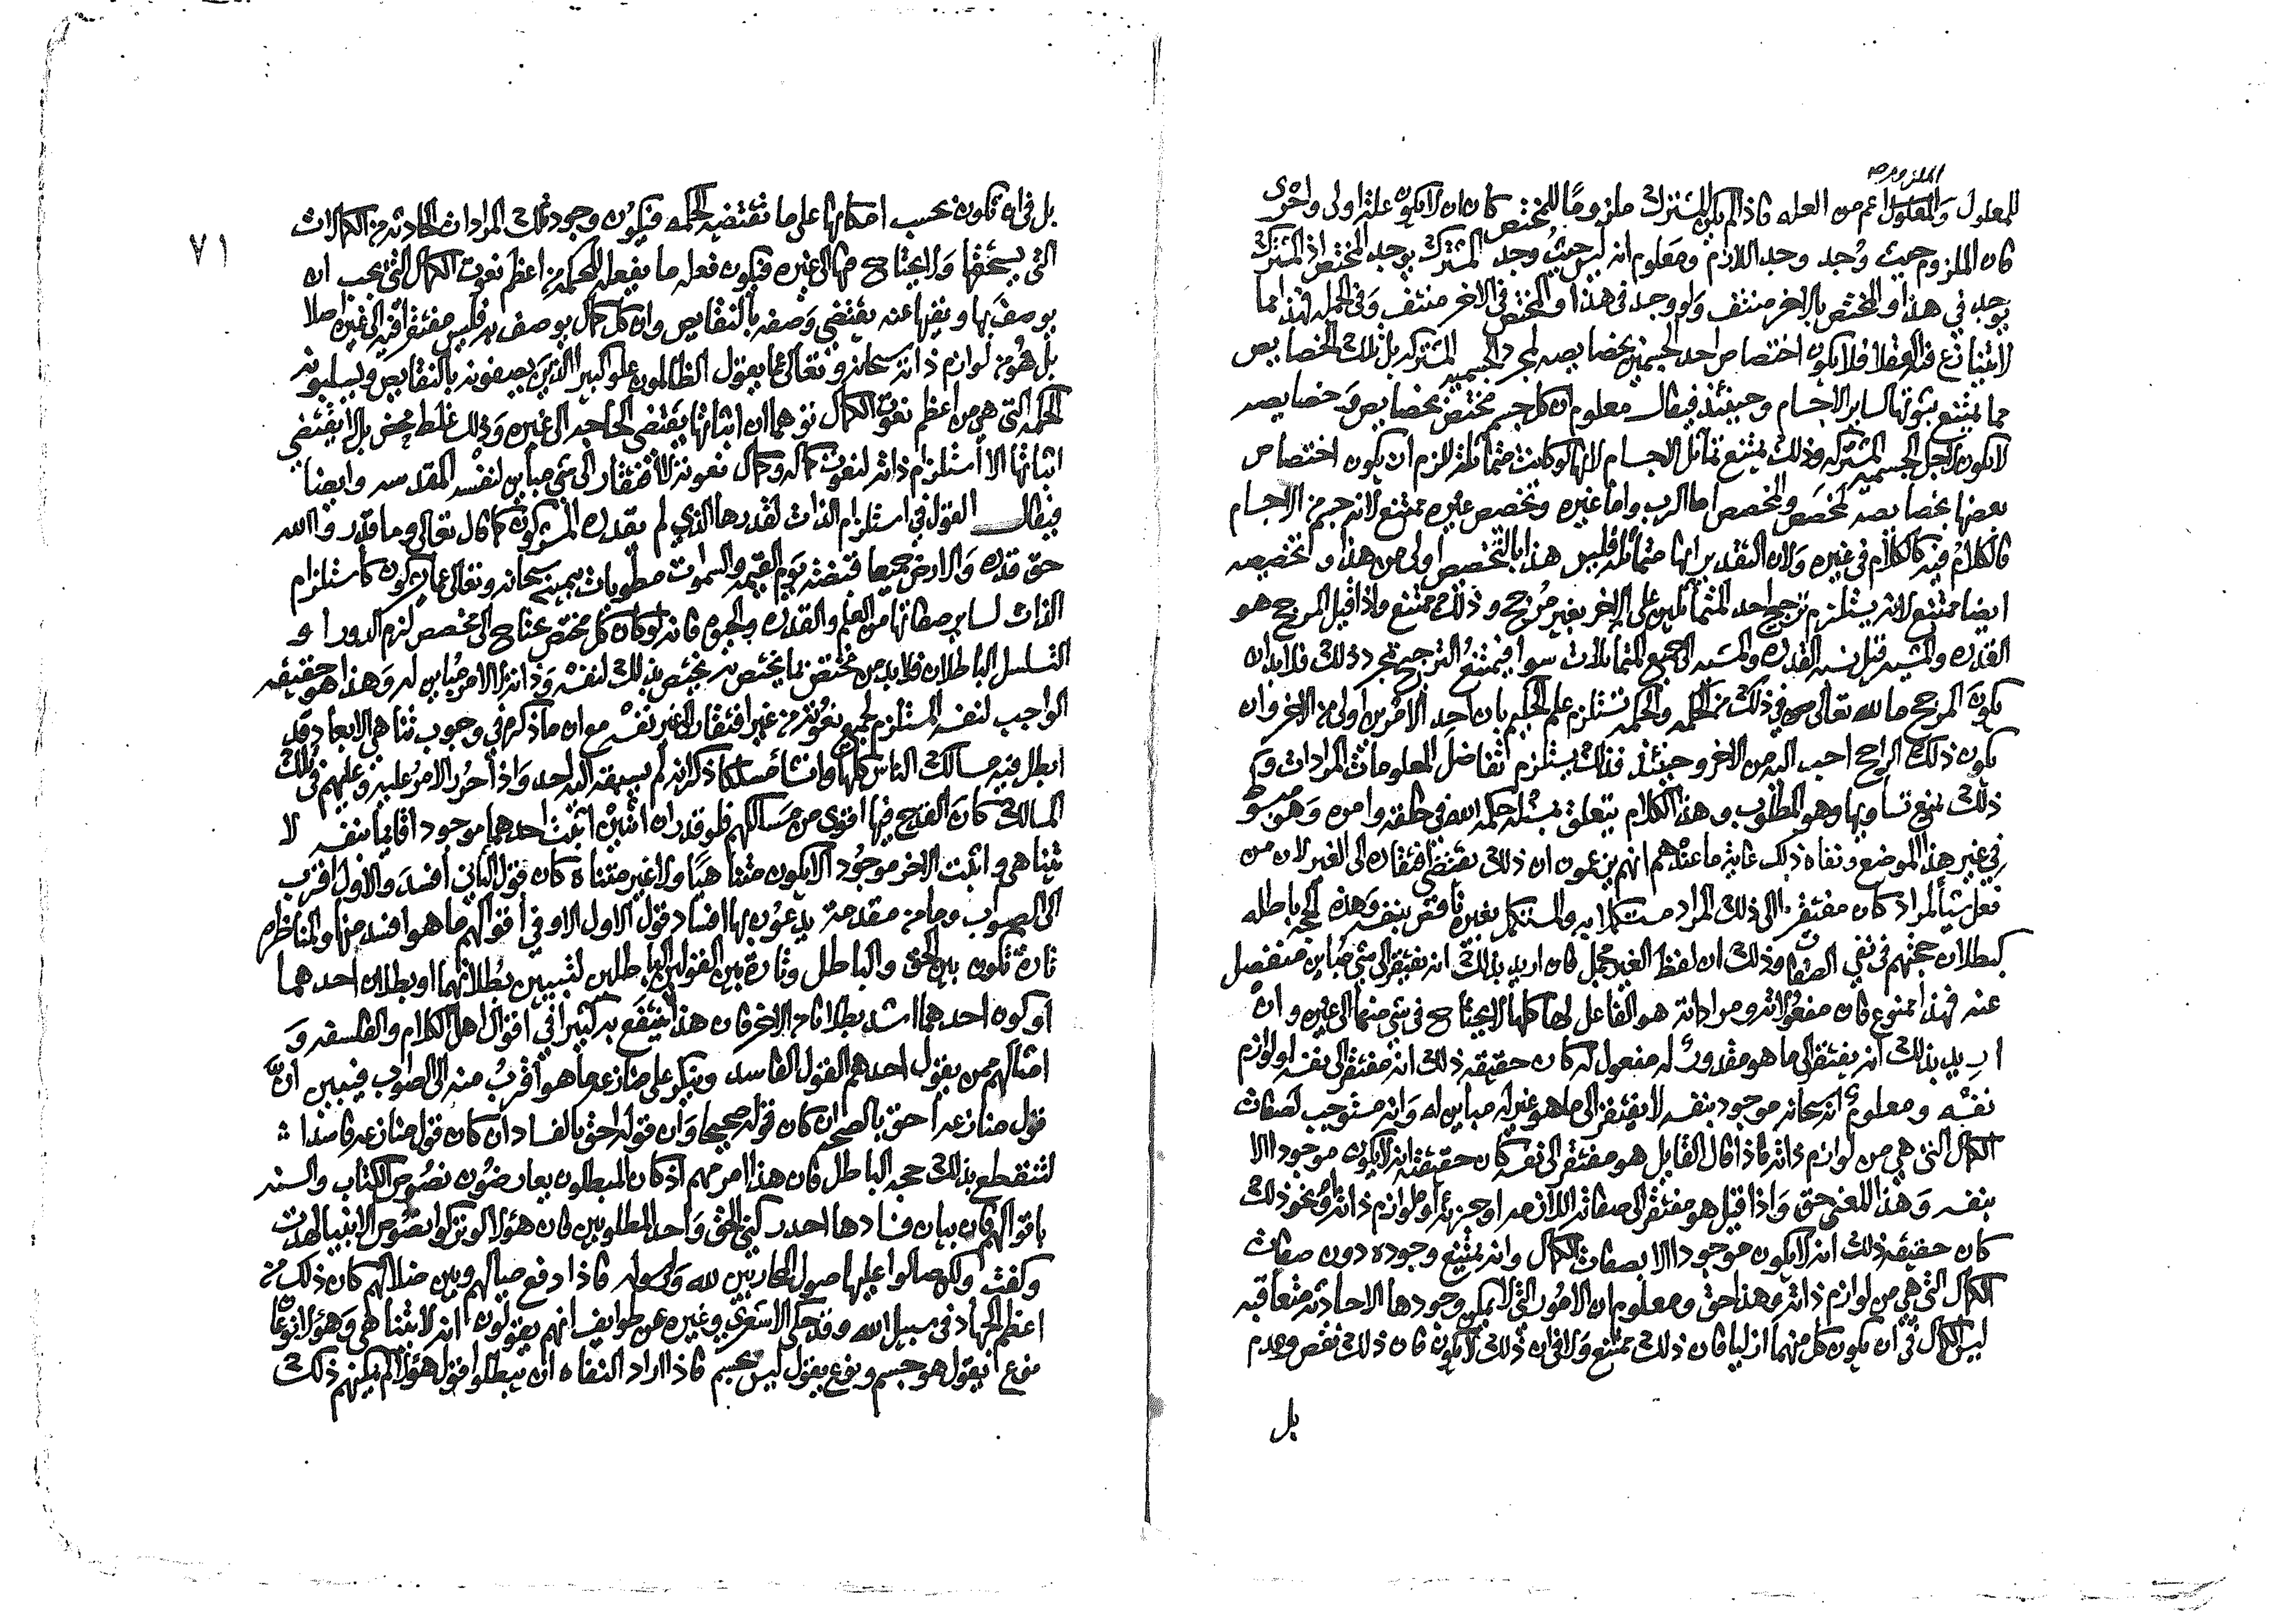 الملزوم صح
للمعلول والمعلول اعم من العله فاذا لم يكن المشترك ملزومًا للمختص كان ان لا يكون علة اولى واحرى
فان الملزوم حيث وُجد وجد اللازم ومعلوم انه ليس حيث وجد المشترك يوجد المختص اذ المشترك
يوجد في هذا والمختص بالاخر منتف ولو وجد في هذا والمختص في الاخر منتف وفي الجمله فهذا مما
لا يتنازع فيه العقلا فلا يكون اختصاص احد الجسمين بخصايصه لمجرد الجسميه المشتركه بل تلك الخصايص
مما يمتنع ثبوتها لساير الاجسام وحينئذ فيقال معلوم ان كل جسم مختص بخصايص وخصايصه
لا يكون لاجل الجسميه المشتركه وذلك يمنع تماثل الاجسام لانها لو كانت متماثلة للزم ان يكون اختصاص
بعضها بخصايصه لمخصص والمخصص اما الرب واما غيره وتخصص غيره ممتنع لانه جسم من الاجسام
فالكلام فيه كالكلام في غيره ولان التقدير انها متماثله فليس هذا بالتخصص اولى من هذا وتخصيصه
ايضا ممتنع لانه يستلزم ترجيح احد المتماثلين على الاخر بغير مُرجح وذلك ممتنع واذا قيل المرجح هو
القدره والمشيه قيل نسبه القدره والمشيه الى جميع المتماثلات سوا فيمتنع الترجيح بمجرد ذلك فلا بد ان
يكون المرجح ما لله تعالى في ذلك من الحكمه والحكمه تستلزم علم الحكيم بان احد الامرين اولى من الاخر وان
يكون ذلك الراجح احب اليه من الاخر وحينئذ فذلك يستلزم تفاضل المعلومات المرادات و
ذلك يمنع تساويها وهو المطلوب وهذا الكلام يتعلق بمسئله حكمه الله في خلقه وامره وهو مبسوط
في غير هذا الموضع ونفاه ذلك غاية ما عندهم انهم يزعمون ان ذلك يقتضي افتقاره الى الغير لان من
فعل شيأ لمراد كان مفتقرا الى ذلك المراد مستكملا به والمستكمل بغيره ناقص بنفسه وهذه الحجه باطله
كبطلان حجتهم في نفي الصفات وذلك ان لفظ الغير مجمل فان اريد بذلك انه يفتقر الى شي مُباين منفصل
عنه فهذا ممنوع فان مفعولاته ومراداته هو الفاعل لها كلها لا يحتاج في شي منها الى غيره وان
اريد بذلك انه يفتقر الى ما هو مقدورٌ له مفعول له كان حقيقه ذلك انه مفتقر الى نفسه او لوازم
نفسه ومعلومٌ انه سبحانه موجود بنفسه لا يفتقر الى ما هو غير له مباين له وانه مستوجب لصفات
الكمال التي هي من لوازم ذاته فاذا قال القايل هو مفتقر الى نفسه كان حقيقته انه لا يكون موجودا الا
بنفسه وهذا المعنى حق واذا قيل هو مفتقر الى صفاته اللازمه او جزئه او لوازم ذاته ونحو ذلك
كان حقيقه ذلك انه لا يكون موجودا الا بصفات الكمال وانه يمتنع وجوده دون صفات
الكمال التي هي من لوازم ذاته وهذا حق ومعلوم ان الامور التي لا يمكن وجودها الا حادثه متعاقبه
ليس الكمال في ان يكون كل منهما ازليا فان ذلك ممتنع ولا في ان ذلك لا يكون فان ذلك نقص وعدم
بل
٧١
بل في ان تكون بحسب امكانها على ما تقتضيه الحكمه فيكون وجود تلك المرادات الحادثه من الكمالات
التي يستحقها ولا يحتاج فيها الى غيره فيكون فعله ما يفعله لحكمه من اعظم نعوت الكمال التي يجب ان
يوصف بها ونفيها عنه يقتضي وصفه بالنقايص وان كل كمال يوصف به فليس مفتقرا فيه الى غيره اصلا
بل هُو من لوازم ذاته سبحانه وتعالى عما يقول الظالمون علوا كبيرا الذين يصفونه بالنقايص ويسلبونه
الحكمه التي هي من اعظم نعوت الكمال توهما ان اثباتها يقتضي الحاجه الى غيره وذلك غلط محض بل لا يقتضي
اثباتها الا استلزام ذاته لنعوت كماله وكمال نعوته لا افتقار الى شي مباين لنفسه المقدسه وايضا
فيقال القول في استلزام الذات لقدرها الذي لم يقدره المشركون كما قال تعالى وما قدروا الله
حق قدره والارض جميعا قبضته يوم القيمه والسموات مطويات بيمينه سبحانه وتعالى عما يشركون كاستلزام
الذات لساير صفاتها من العلم والقدره والحيوه فانه لو كان كل مختص محتاج الى مخصص لزم الدور او
التسلسل الباطلان فلا بد من مختص بما يختص به يختص بذلك لنفسه وذاته لا لامر مُباين له وهذا هو حقيقه
الواجب لنفسه المستلزم لجميع نعوته من غير افتقار الى غير نفسه مع ان ما ذكره في وجوب تناهي الابعاد قد
ابطل فيه مسالك الناس كلها وانشأ مسلكا ذكر انه لم يسبقه اليه احد واذا حُرر الامر عليه وعليهم في تلك
المسالك كان القدح فيها اقوى من مسالكهم فلو قدر ان اثنين اثبت احدهما موجودا قايما بنفسه لا
يتناهى واثبت الاخر موجُودا لا يكون متناهيًا ولا غير متناه كان قول الثاني افسد والاول اقرب
الى الصواب وما من مقدمة يدعون بها افساد قول الاول الا وفي اقوالهم ما هو افسد منها والمناظره
تارة تكون بين الحق والباطل وتارة بين القولين الباطلين لتبيين بطلانهما او بطلان احدهما
او كون احدهما اشد بطلانا من الاخر فان هذا ينتفع به كثيرا في اقوال اهل الكلام والفلسفه و
امثالهم ممن يقول احدهم القول الفاسد وينكر على منازعه ما هو اقربُ منه الى الصواب فيبين ان
قول منازعه احق بالصحه ان كان قوله صحيحا وان قوله احق بالفساد ان كان قول منازعه فاسدا
لتنقطع بذلك حجه الباطل فان هذا امر مهم اذ كان المبطلون يعارضون نصُوص الكتاب والسنه
باقوالهم فان بيان فسادها احد ركني الحق واحد المطلوبين فان هؤلا لو تركوا نصُوص الانبيا لهدت
وكفت ولكن صالوا عليها صول المحاربين لله ولرسوله فاذا دفع صيالهم وبين ضلالهم كان ذلك من
اعظم الجهاد في سبيل الله وقد حكى الاشعري وغيره عن طوايف انهم يقولون انه لا يتناهى وهؤلا نوعان
نوع يقول هو جسم ونوع يقول ليس بجسم فاذا اراد النفاه ان يبطلوا قول هؤلا لم يمكنهم ذلك